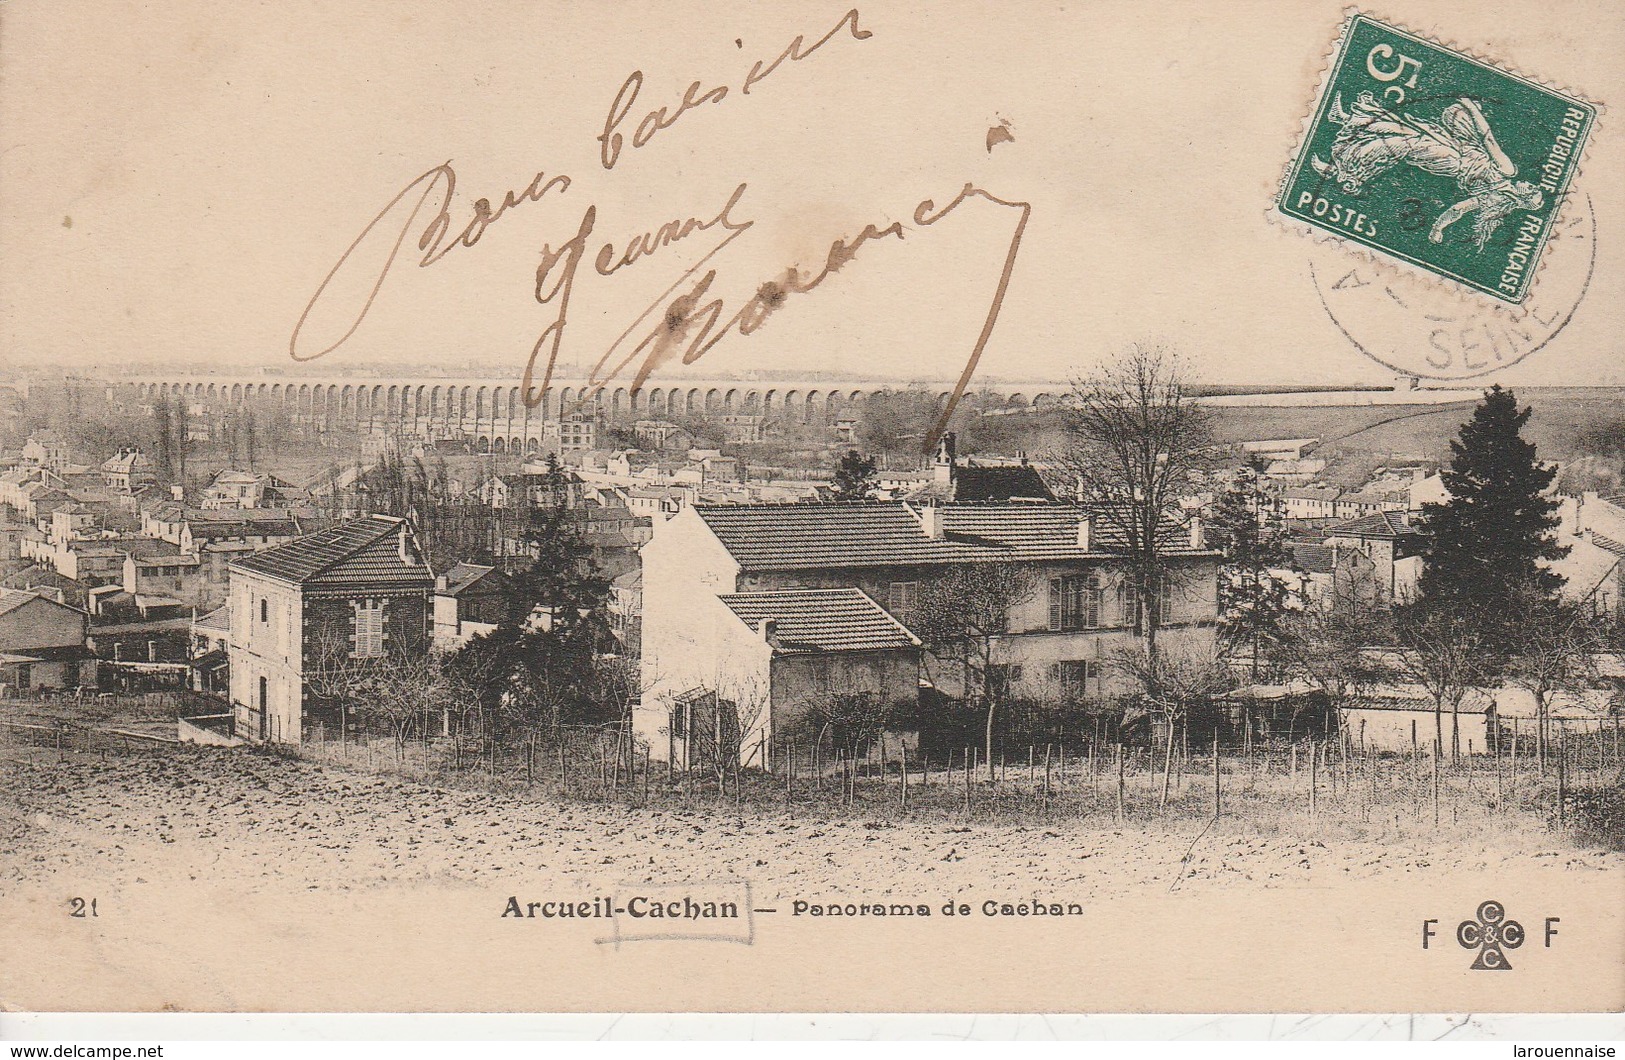 Bons baisers
Jeanne
5c
REPUBLIQUE FRANÇAISE
POSTES
A
SEINE
21
Arcueil-Cachan — Panorama de Cachan
F C C&C C F
www.delcampe.net
larouennaise